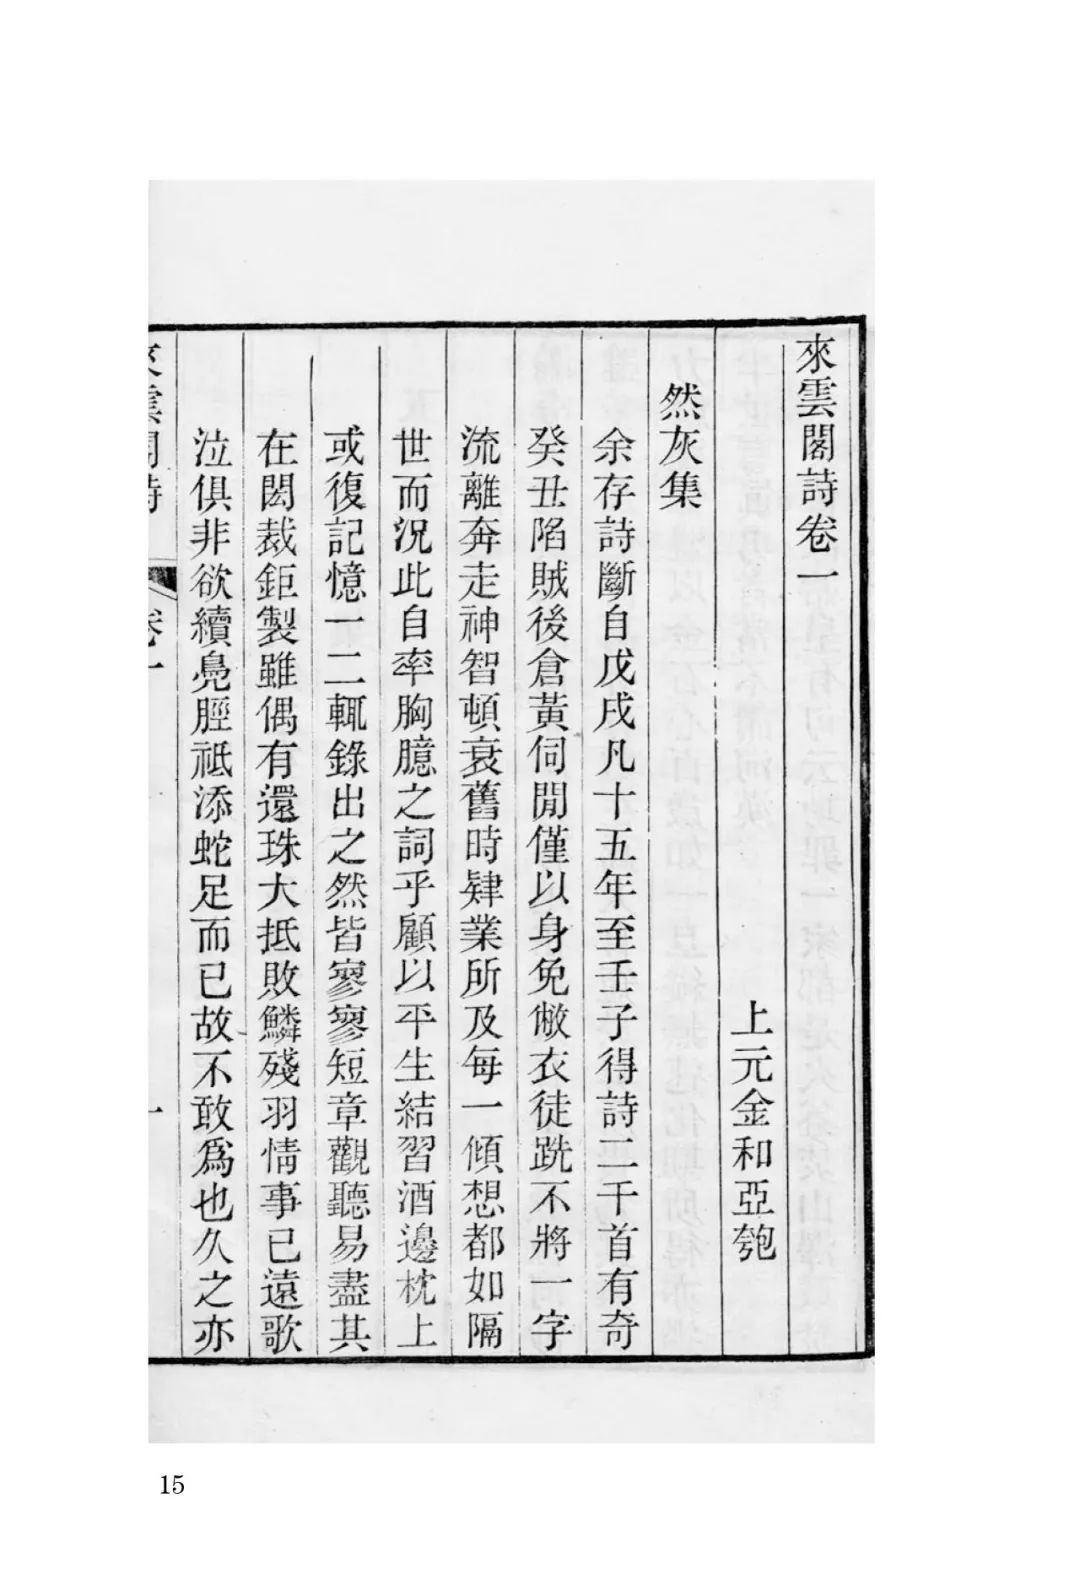 來雲閣詩卷一
上元金和亞匏
然灰集
余存詩斷自戊戌凡十五年至壬子得詩二千首有奇
癸丑陷賊後倉黃伺閒僅以身免敝衣徒跣不將一字
流離奔走神智頓衰舊時肄業所及每一傾想都如隔
世而況此自率胸臆之詞乎顧以平生結習酒邊枕上
或復記憶一二輒錄出之然皆寥寥短章觀聽易盡其
在閎裁鉅製雖偶有還珠大抵敗鱗殘羽情事已遠歌
泣俱非欲續鳧脛祗添蛇足而已故不敢爲也久之亦
來雲閣詩 卷一 一
15